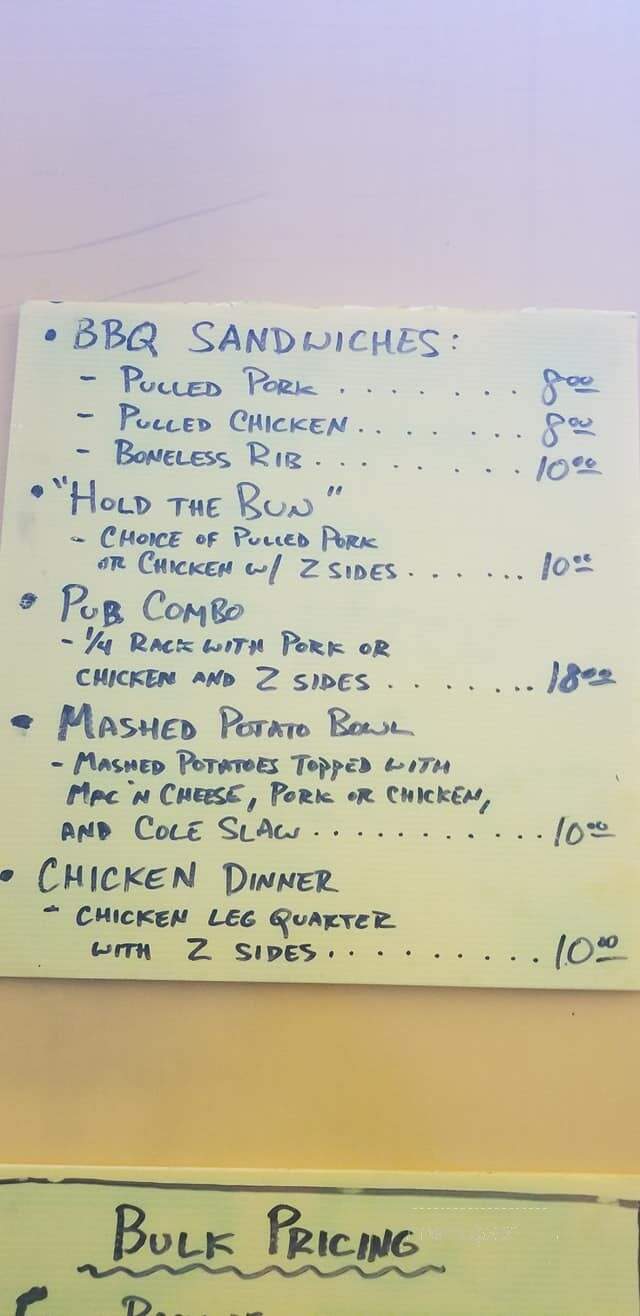 • BBQ SANDWICHES:
- PULLED PORK . . . . . . . 8.00
- PULLED CHICKEN . . . . . . . 8.00
- BONELESS RIB . . . . . . . . 10.00
• "HOLD THE BUN"
- CHOICE OF PULLED PORK
OR CHICKEN W/ 2 SIDES . . . . . . 10.00
• PUB COMBO
- 1/4 RACK WITH PORK OR
CHICKEN AND 2 SIDES . . . . . . . . 18.00
• MASHED POTATO BOWL
- MASHED POTATOES TOPPED WITH
MAC 'N CHEESE, PORK OR CHICKEN,
AND COLE SLAW . . . . . . . . . . . 10.00
• CHICKEN DINNER
- CHICKEN LEG QUARTER
WITH 2 SIDES . . . . . . . . . . 10.00
BULK PRICING